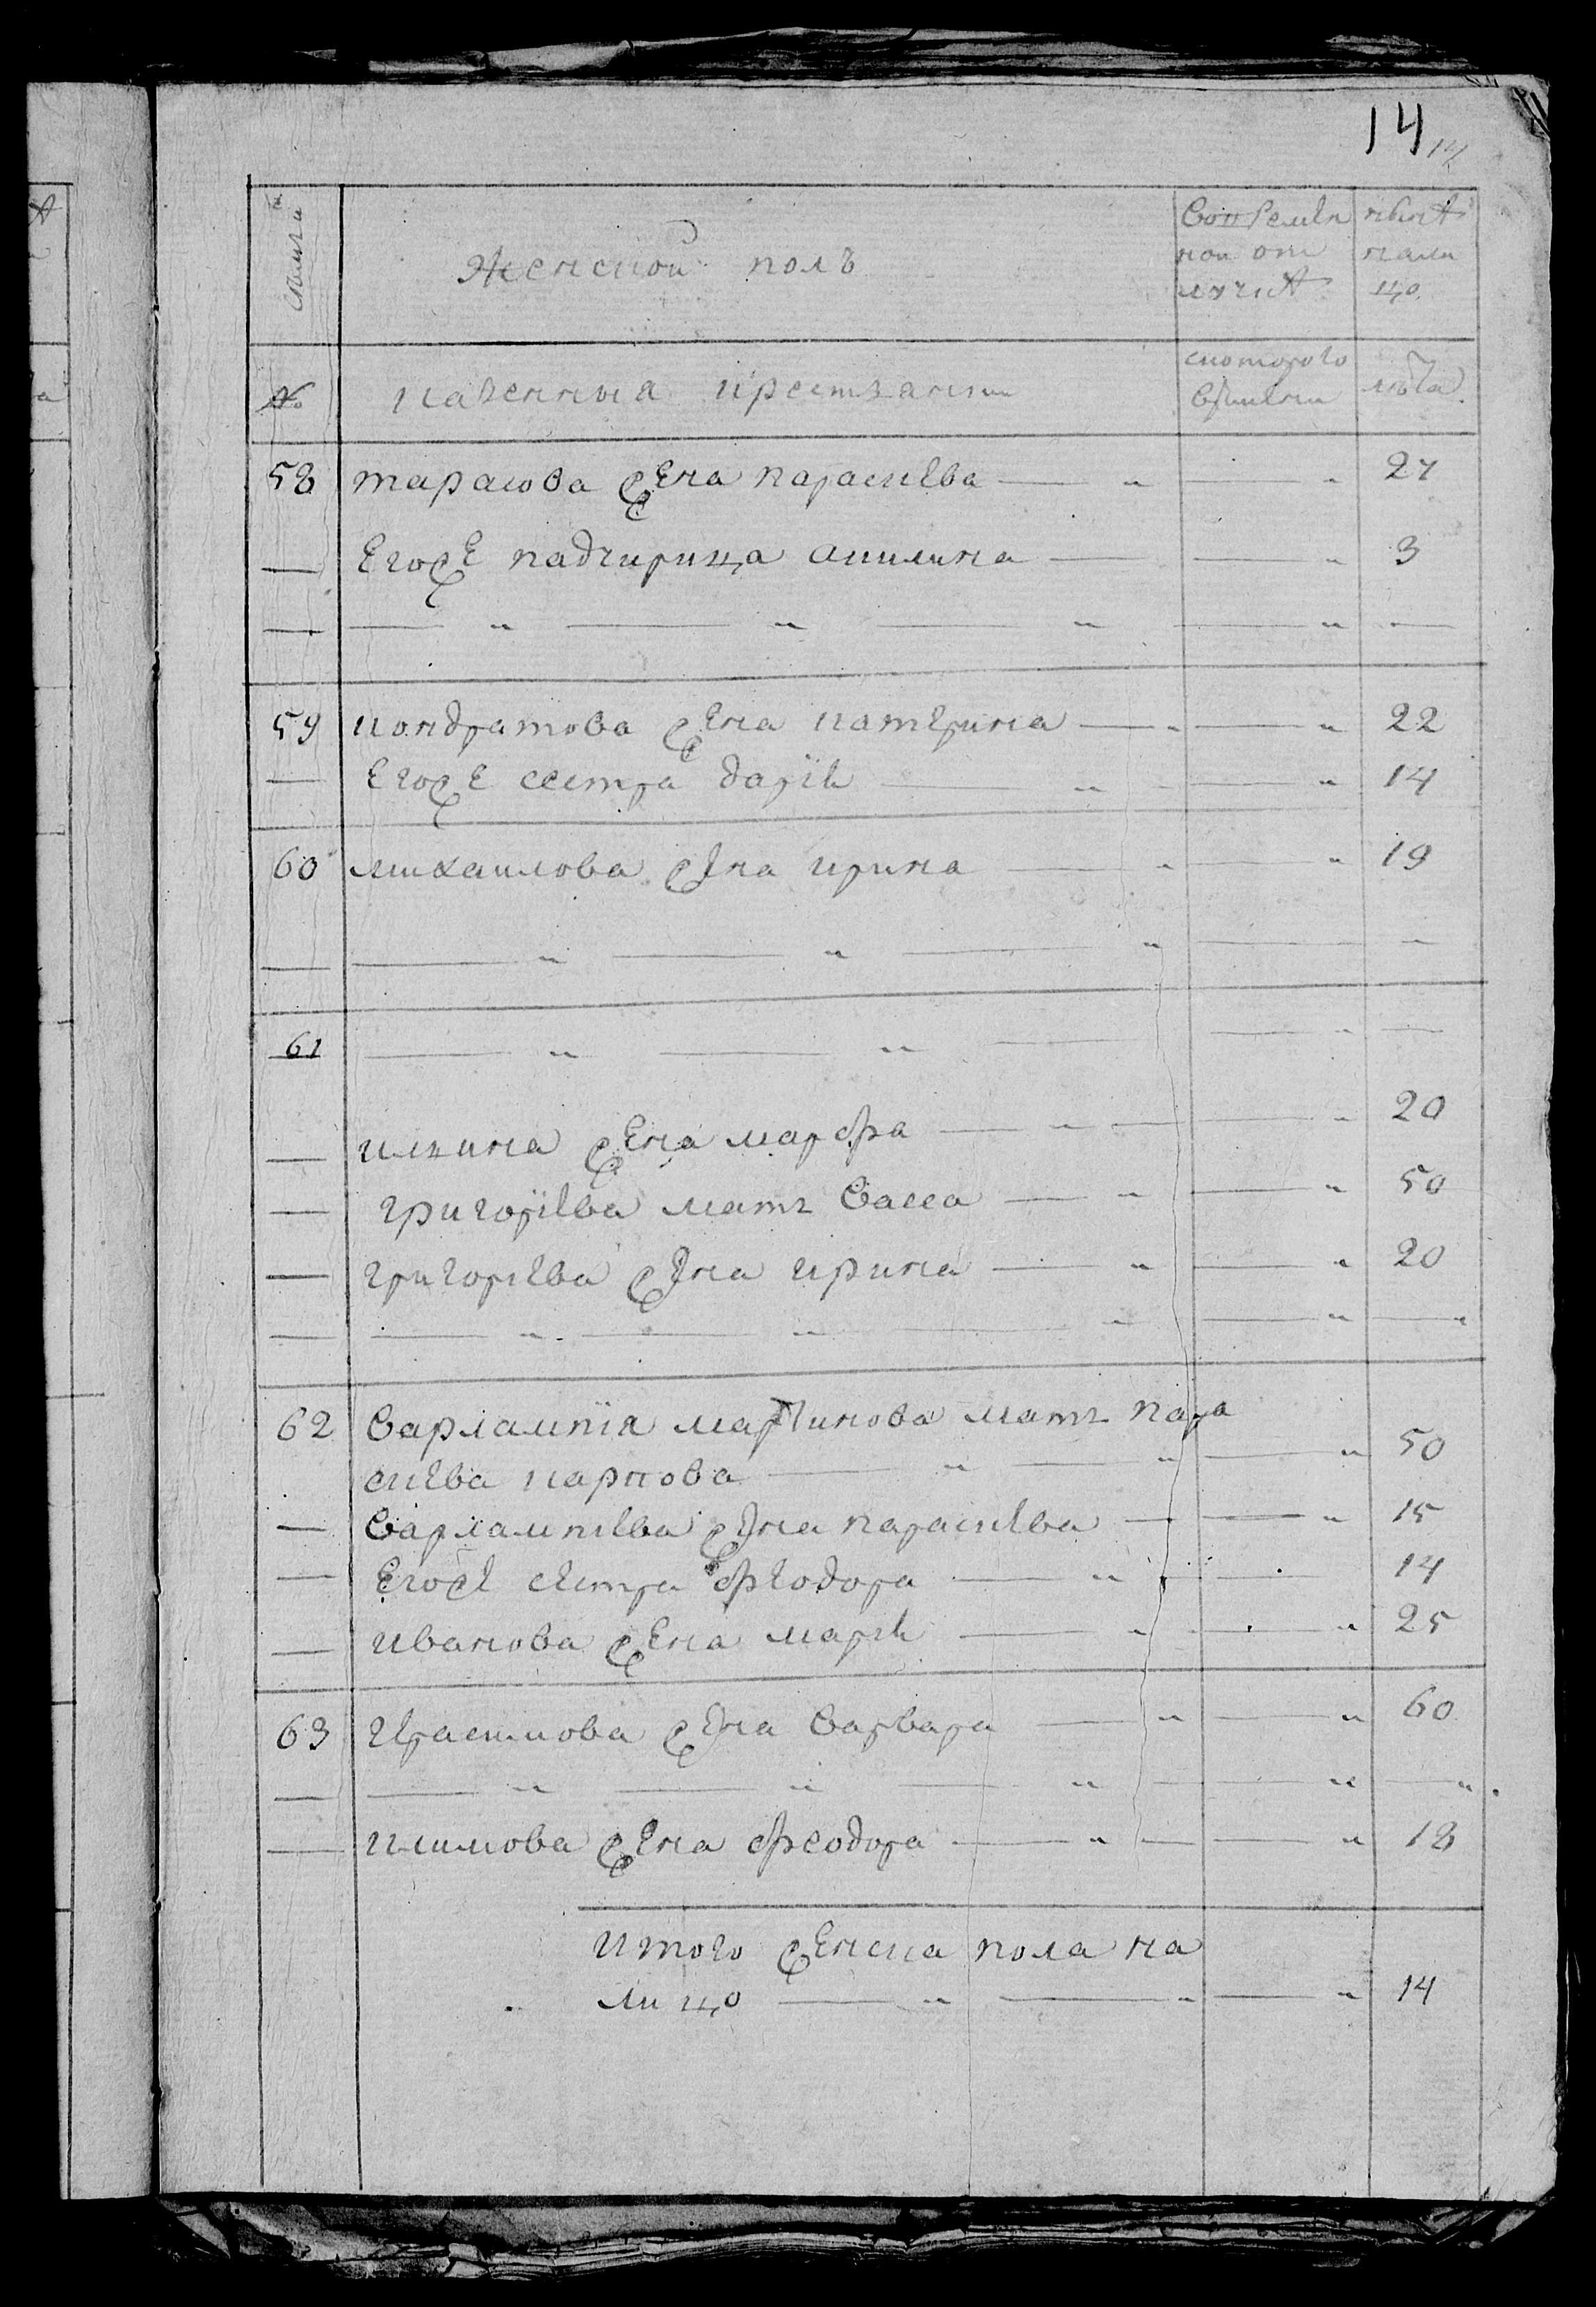 14 14
семьи
Женской полъ
Во временной отлучке
ныне на лицо
№
казенныя крестьянки
с котораго времени
лета
58 Тарасова жена парасковева — " — " 27
— Егоже падчирица акилина — — " 3
— — " — " — " — " —
59 кондратова жена катерина — " — " 22
— Егоже сестра дарiя — " — — " 14
60 михаилова жена ирина — " — " 19
— — " — " — " — —
61 — " — " — — " —
— илина жена марфа — " — — " 20
— григорiева мать васса — " — " 50
— григориева жена ирина — " — " 20
— — " — " — " — " — "
62 варлампiя мартинова мать пара
скева карпова — " — " — " 50
— варлампиева жена параскева — — " 15
— Егоже сестра феодора — " — 14
— иванова жена марья — " — " 25
63 жена варвара — " — " 60
— — " — " — " — — " — "
— климова жена феодора — " — — " 18
итого женска пола на
ли цо — " — " — " 14